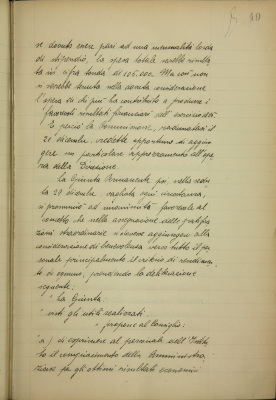 10
se dovuto essere pari ad una mensilità lorda
di stipendio, la spesa totale sarebbe risulta
ta in cifra tonda di 105.000. Ma così non
si sarebbe tenuta nella dovuta considerazione
l'opera di chi più ha contribuito a produrre i
favorevoli risultati finanziari dell'
E perciò la Commissione, radunatasi il
21 dicembre, credette opportuno di aggiun
gere un particolare apprezzamento all'ope
ra della Direzione.
La Giunta Permanente poi, nella sedu
ta 29 dicembre, vagliata ogni circostanza,
si pronunciò ad unanimità favorevole al
concetto che nella assegnazione delle gratifica
zioni straordinarie si dovesse aggiungere alla
considerazione di benevolenza verso tutto il per
sonale principalmente il criterio di rendimen
to di ognuno, prendendo la deliberazione
seguente:
" La Giunta
" visti gli utili realizzati
" propone al Consiglio:
" a) di esprimere al personale dell'Istitu
to il compiacimento della Amministra
zione per gli ottimi risultati economici